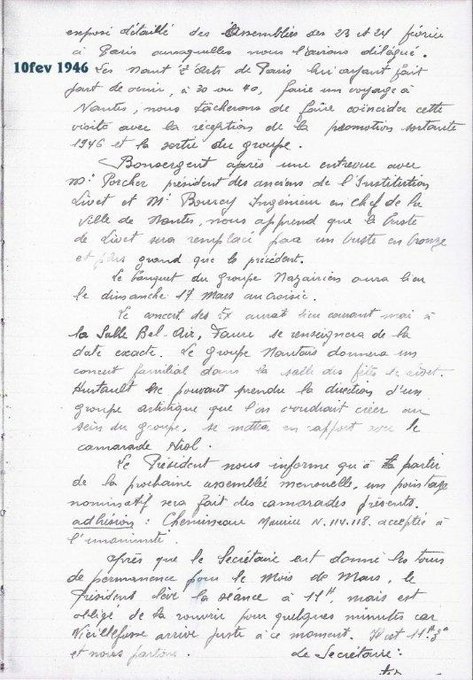 exposé détaillé des Assemblées des 23 et 24 février
à Paris auxquelles nous l'avions délégué.
10fev 1946
Les Nant'z'Arts de Paris lui ayant fait
part de venir, à 30 ou 40, faire un voyage à
Nantes, nous tâcherons de faire coïncider cette
visite avec la réception de la promotion sortante
1946 et la sortie du groupe.
Bonsergent après une entrevue avec
Mr Porcher président des anciens de l'Institution
Livet et Mr Bourcy Ingénieur en Chef de la
Ville de Nantes, nous apprend que le buste
de Livet sera remplacé par un buste en bronze
et plus grand que le précédent.
Le banquet du groupe Nazairien aura lieu
le dimanche 17 Mars au Croisic.
Le concert des aurait lieu courant mai à
la Salle Bel-Air, Faure se renseignera de la
date exacte. Le groupe Nantais donnera un
concert familial dans la salle des fêtes de Livet.
Hurtault ne pouvant prendre la direction d'un
groupe artistique que l'on voudrait créer au
sein du groupe, se mettra en rapport avec le
camarade Niol.
Le Président nous informe qu'à partir
de la prochaine assemblée mensuelle, un pointage
nominatif sera fait des camarades présents.
adhésion : Maurice N. 114.118. acceptée à
l'unanimité.
Après que le Secrétaire est donné les tours
de permanence pour le Mois de Mars, le
Président lève la séance à 11H, mais est
obligé de la rouvrir pour quelques minutes car
Vieillefosse arrive juste à ce moment. Il est 11H
et nous partons. Le Secrétaire: